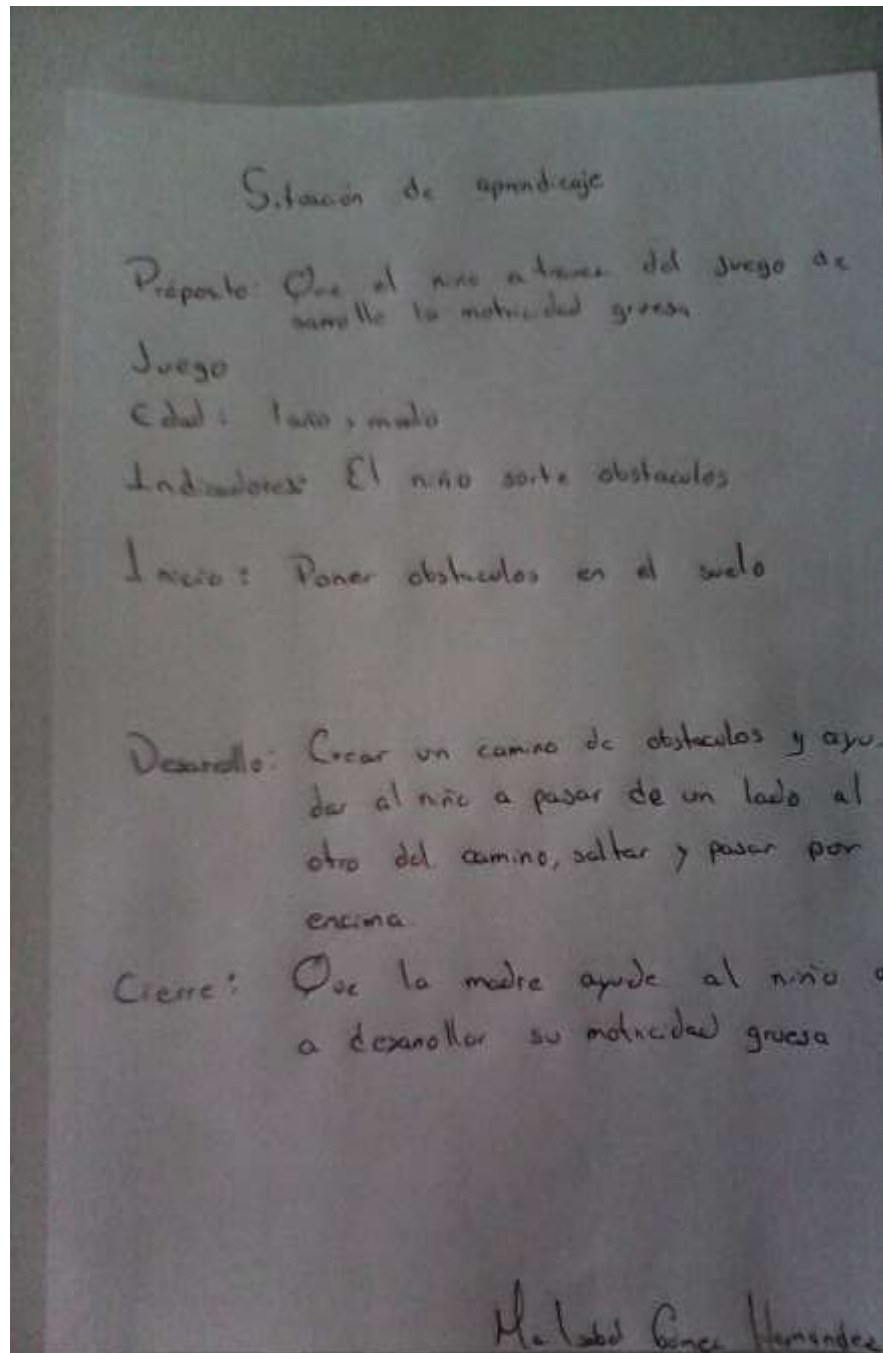 Situación de aprendicaje
Próposito: Que el niño a traves del Juego de
sarrolle la motricidad gruesa
Juego
Edad: 1 año y medio
Indicadores: El niño sorte obstaculos
Inicio: Poner obstaculos en el suelo
Desarrollo: Crear un camino de obstaculos y ayu-
dar al niño a pasar de un lado al
otro del camino, saltar y pasar por
encima.
Cierre: Que la madre ayude al niño a
a desarrollar su motricidad gruesa
Ma Isabel Gómez Hernandez